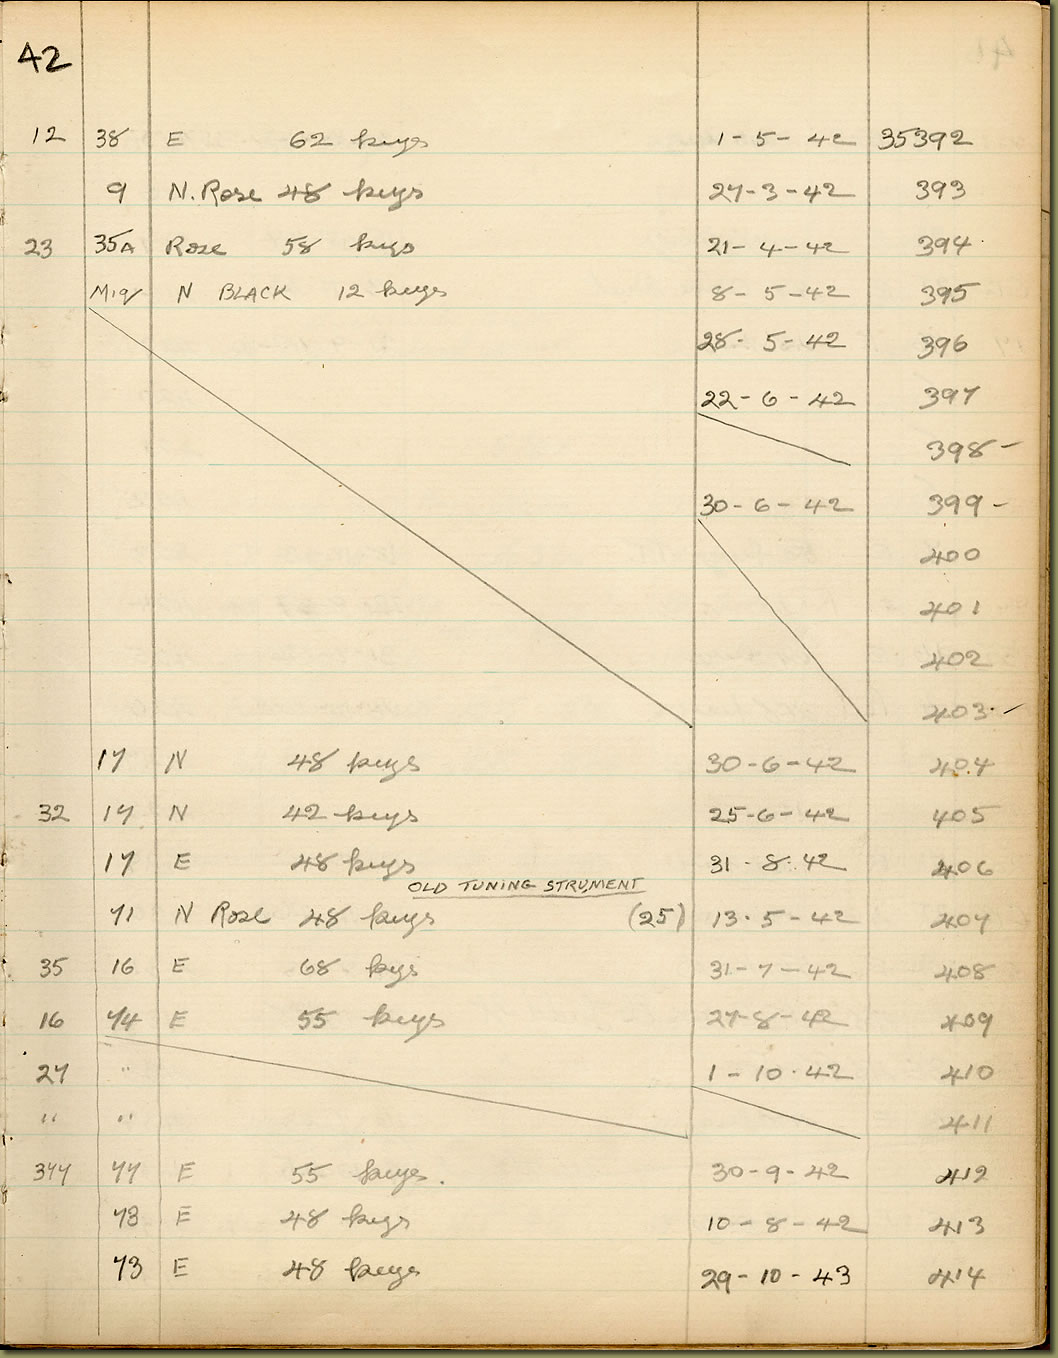 42
12 38 E 62 keys 1-5-42 35392
9 N.Rose 48 keys 27-3-42 393
23 35A Rose 58 keys 21-4-42 394
Mig N BLACK 12 keys 8-5-42 395
28-5-42 396
22-6-42 397
398-
30-6-42 399-
400
401
402
403-
17 N 48 keys 30-6-42 404
32 17 N 42 keys 25-6-42 405
17 E 48 keys 31-8-42 406
OLD TUNING STRUMENT
71 N Rose 48 keys (25) 13-5-42 407
35 16 E 68 keys 31-7-42 408
16 74 E 55 keys 27-8-42 409
27 " 1-10-42 410
" " 411
377 77 E 55 keys. 30-9-42 412
73 E 48 keys 10-8-42 413
73 E 48 keys 29-10-43 414